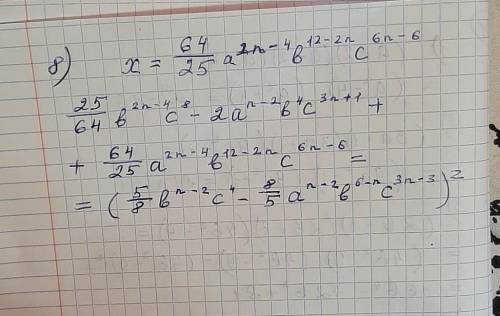 8) x = 64/25 a^{2n-4} b^{12-2n} c^{6n-6}
25/64 b^{2n-4} c^8 - 2a^{n-2} b^4 c^{3n+1} +
+ 64/25 a^{2n-4} b^{12-2n} c^{6n-6} =
= (5/8 b^{n-2} c^4 - 8/5 a^{n-2} b^{6-n} c^{3n-3})^2